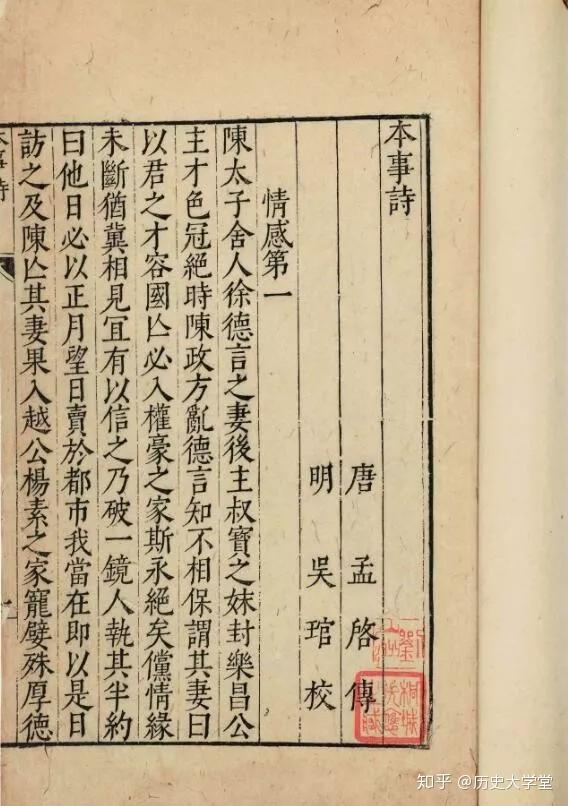 本事詩
唐孟啓傳
明吳琯校
情感第一
陳太子舍人徐德言之妻後主叔寶之妹封樂昌公
主才色冠絕時陳政方亂德言知不相保謂其妻曰
以君之才容國亾必入權豪之家斯永絕矣儻情緣
未斷猶冀相見冝有以信之乃破一鏡人執其半約
曰他日必以正月望日賣於都市我當在即以是日
訪之及陳亾其妻果入越公楊素之家寵嬖殊厚德
本事詩
知乎 @历史大学堂